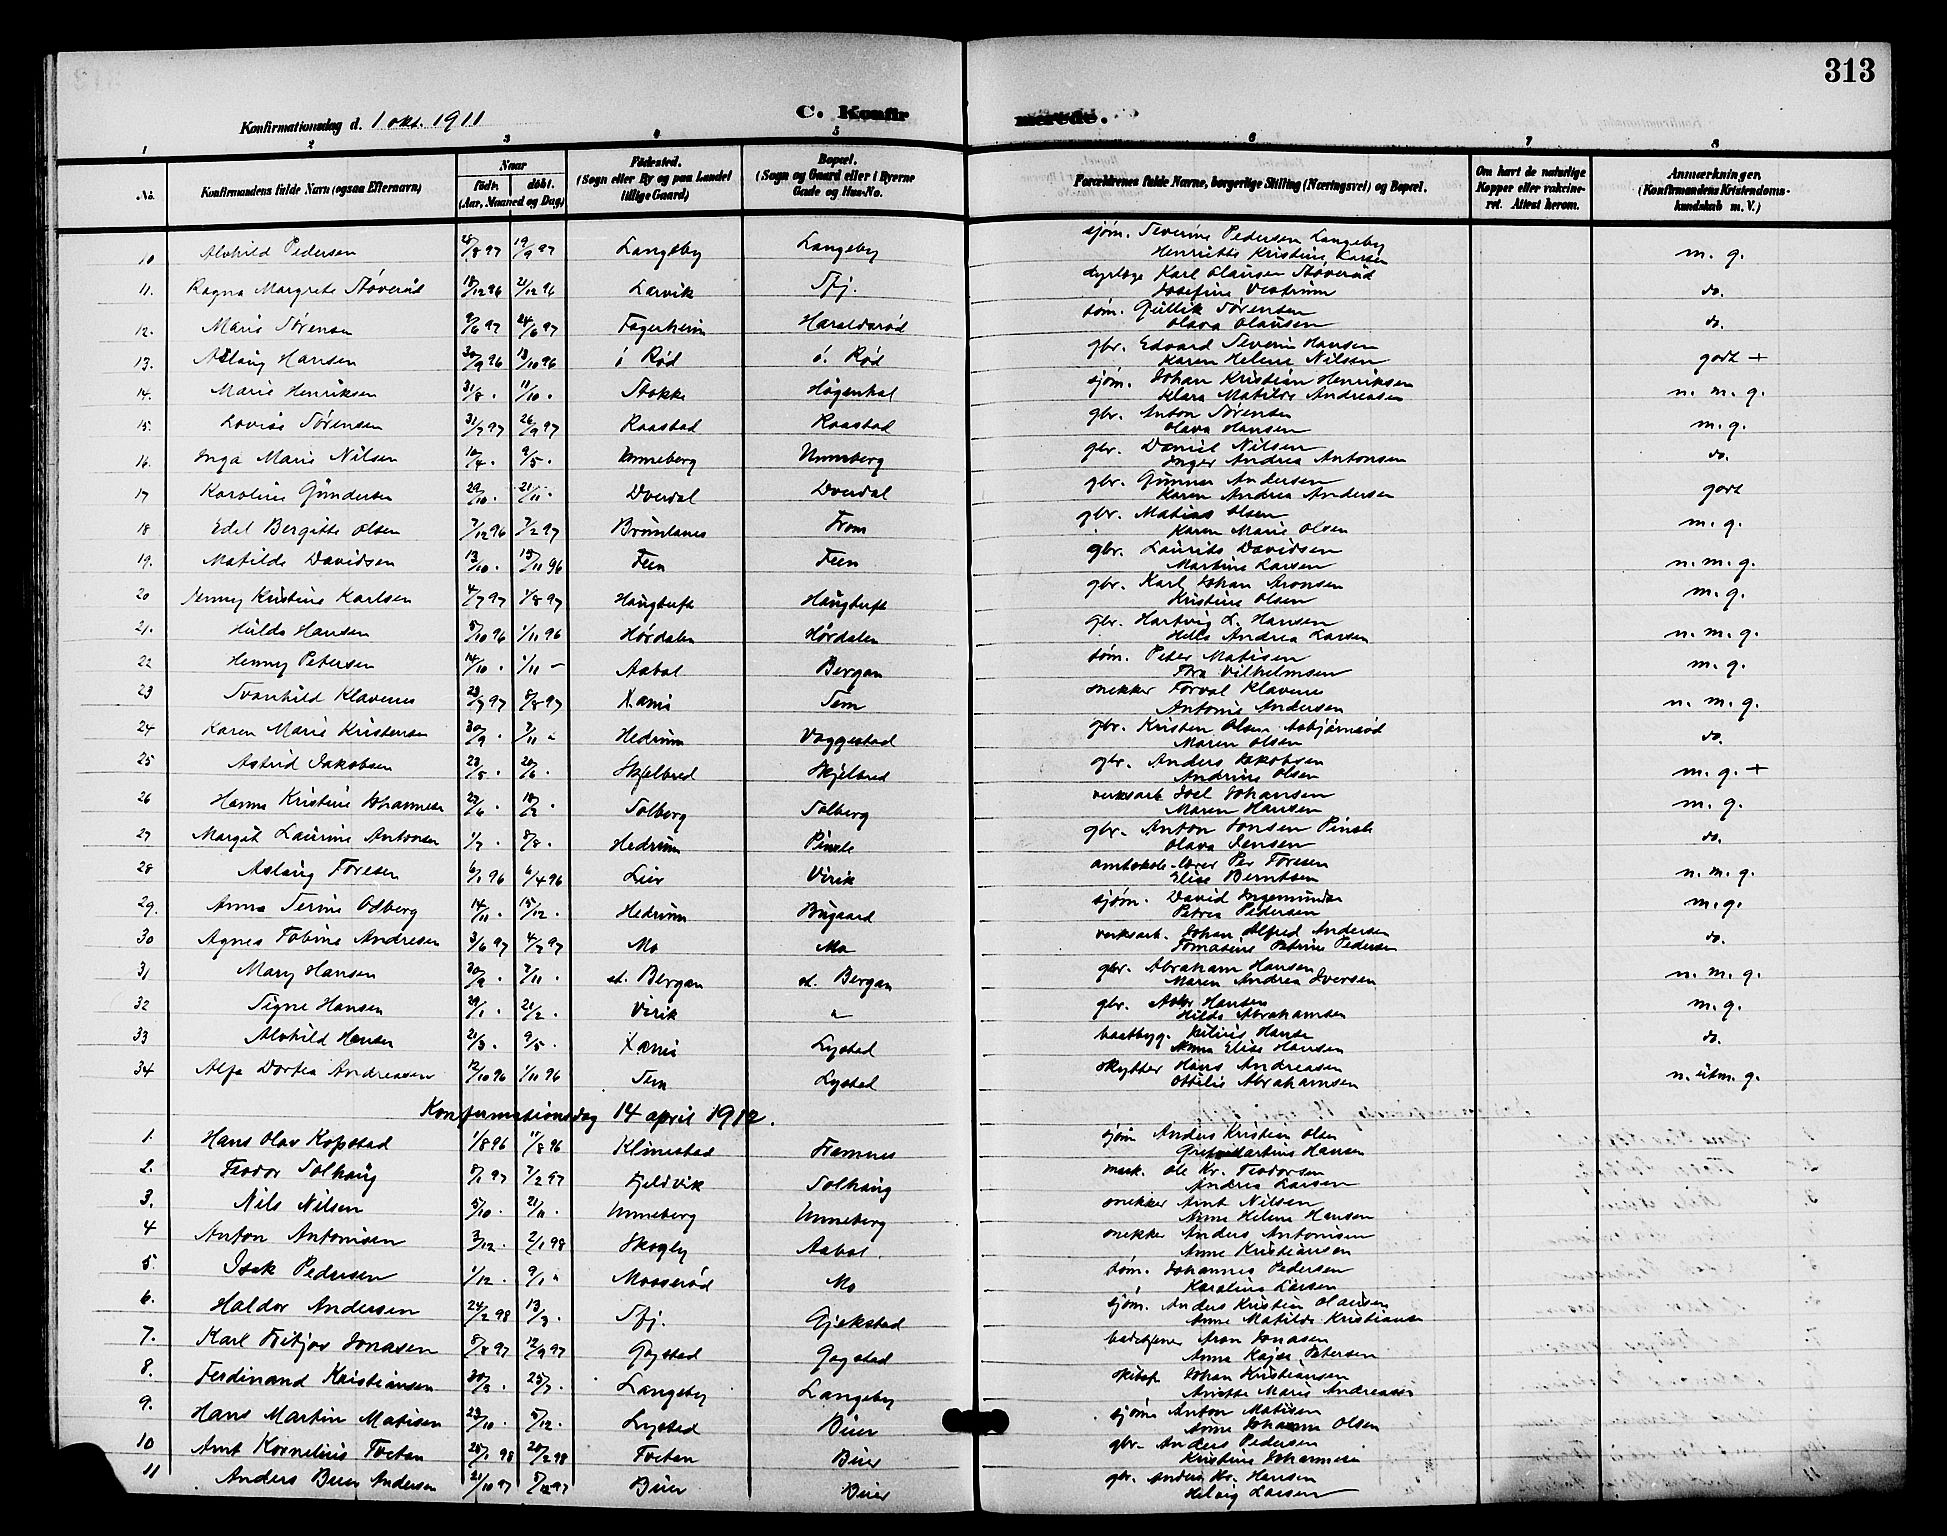 313
Konfirmationsdag d. 1 okt. 1911
C. Konfirmerede.
1 2 3 4 5 6 7 8
No. Konfirmandens fulde Navn (ogsaa Efternavn) Naar født. døbt. (Aar, Maaned og Dag) Fødested. (Sogn eller By og paa Landet tillige Gaard) Bopæl. (Sogn og Gaard eller i Byerne Gade og Hus-No. Forældrenes fulde Navne, borgerlige Stilling (Næringsvei) og Bopæl. Om havt de naturlige Kopper eller vakcineret. Attest herom. Anmærkninger. (Konfirmandens Kristendomskundskab m. V.)
10 Alvhild Pedersen 28/8 97 19/9 97 Langeby Langeby sjøm. Severin Pedersen Langeby m. g.
Henriette Kristine Larsen
11. Ragna Margrete Støverød 18/12 96 21/12 96 Larvik Sfj. dyrlæge Karl Olausen Støverød do.
Josefine Vestrum
12. Marie Sørensen 9/6 97 24/6 97 Fagerheim Haraldsrød tøm. Gullik Sørensen do.
Olava Olausen
13. Aslaug Hansen 30/9 96 18/10 96 ö Rød ö. Rød gbr. Edvard Severin Hansen godt +
Karen Helene Nilsen
14. Marie Henriksen 31/8 . 11/10 . Stokke Høgenhal sjøm. Johan Kristian Henriksen n. m. g.
Klara Matilde Andreasen
15. Lovise Sørensen 31/7 97 26/9 97 Raastad Raastad gbr. Anton Sørensen m. g.
Olava Hansen
16. Inga Marie Nilsen 16/4 . 9/5 . Unneberg Unneberg gbr. Daniel Nilsen do.
Inger Andrea Antonsen
17 Karoline Gundersen 29/10 . 21/11 . Dverdal Dverdal gbr. Gunnar Andersen godt
Karen Andrea Andersen
18 Edel Bergitte Olsen 7/12 96 7/2 97 Brunlanes Fram gbr. Matias Olsen m. g.
Karen Marie Olsen
19. Matilde Davidsen 13/10 . 15/11 96 Feen Feen gbr. Laurits Davidsen n. m. g.
Martine Larsen
20 Jenny Kristine Karlsen 4/7 97 1/8 97 Haugtuft Haugtuft gbr. Karl Johan Aronsen m. g.
Kristine Olsen
21. Hilda Hansen 5/10 96 1/11 96 Hørdalen Hørdalen gbr. Hartvig L. Hansen n. m. g.
Helle Andrea Larsen
22 Henny Petersen 14/10 . 1/11 - Aabol Bergan tøm. Peter Matisen m. g.
Tora Vilhelmsen
23 Svanhild Klavenes 23/7 97 8/8 97 X.ania Sem snekker Torval Klavene n. m. g.
Antonie Andersen
24 Karen Marie Kristensen 30/9 . 7/11 . Hedrum Vaggestad gbr. Kristen Olsen Asbjørnsrød do.
Maren Olsen
25 Astrid Jakobsen 23/5 . 20/6 . Skjelbred Skjelbred gbr. Anders Jakobsen m. g. +
Andrine Olsen
26 Hanna Kristine Johannesen 27/6 . 18/7 . Solberg Solberg verksarb. Joel Johansen m. g.
Maren Hansen
27 Margit Laurine Antonsen 1/7 . 8/8 . Hedrum Pindle gbr. Anton Jonsen Pinsle do.
Olava Jensen
28 Aslaug Toresen 6/1 96 6/4 96 Lier Virik amtskole-lærer Per Toresen n. m. g.
Elise Berntsen
29. Anna Serine Odberg 14/11 . 15/12 . Hedrum Bugaard sjøm. David Ingemundsen m. g.
Petrea Pedersen
30 Agnes Tobine Andresen 3/6 97 4/7 97 Mo Mo verksarb. Johan Alfred Andersen do.
Tomasine Petrine Pedersen
31 Mary Hansen 30/9 . 7/11 . st. Bergan st. Bergan gbr. Abraham Hansen n. m. g.
Maren Andrea Iversen
32 Signe Hansen 29/1 . 21/2 . Virik " gbr. Hansen m. g.
Hilda Abrahamsen
33 Alvhild Hansen 21/3 . 9/5 . X.ania Lystad baatbyg. Julius Hansen do.
Anna Elise Hansen
34 Alfa Dortea Andreasen 12/10 96 1/11 96 Sem Lystad skytter Hans Andreasen n. utm. g.
Ottilie Abrahamsen
Konfirmationsdag 14 april 1912.
1. Hans Olav Kopstad 1/8 96 11/8 96 Klinestad Framnes sjøm Anders Kristian Olsen
Martine Hansen
2. Teodor Solhaug 8/1 97 7/2 97 Fjeldvik Solhaug mask. Ole Kr. Teodorsen
Andrea Larsen
3. Nils Nilsen 5/10 . 21/11 . Unneberg Unneberg snekker Arnt Nilsen
Anne Helene Hansen
4 Anton Antonisen 3/12 . 2/1 98 Skogly Aabol. snekker Anders Antonisen
Anne Kristiansen
5. Isak Pedersen 1/12 . 9/1 " Mosserød Mo tøm. Johannes Pedersen
Karoline Larsen
6. Haldor Andersen 24/2 98 13/3 . Sfj. Gjekstad sjøm. Anders Kristian Olausen
Anne Matilde Kristiansen
7. Karl Fritjov Jonasen 8/8 97 12/9 97 Gogstad Gogstad Aron Jonasen
Anna Kajsa Petersen
8. Ferdinand Kristiansen 30/5 . 25/7 . Langeby Langeby skibsf. Johan Kristiansen
Anette Marie Andreassen
9. Hans Martin Matisen 23/10 . 5/12 . Lystad Buer sjøm Anton Matisen
Anne Johanne Olsen
10 Arnt Kornelius Tveten 25/1 98 20/2 98 Tveten Buer gbr. Anders Pedersen
Kristine Johannesen
11 Anders Buer Andersen 21/10 97 5/12 97 Buer Buer gbr. Anders Kr. Hansen
Helvig Larsen